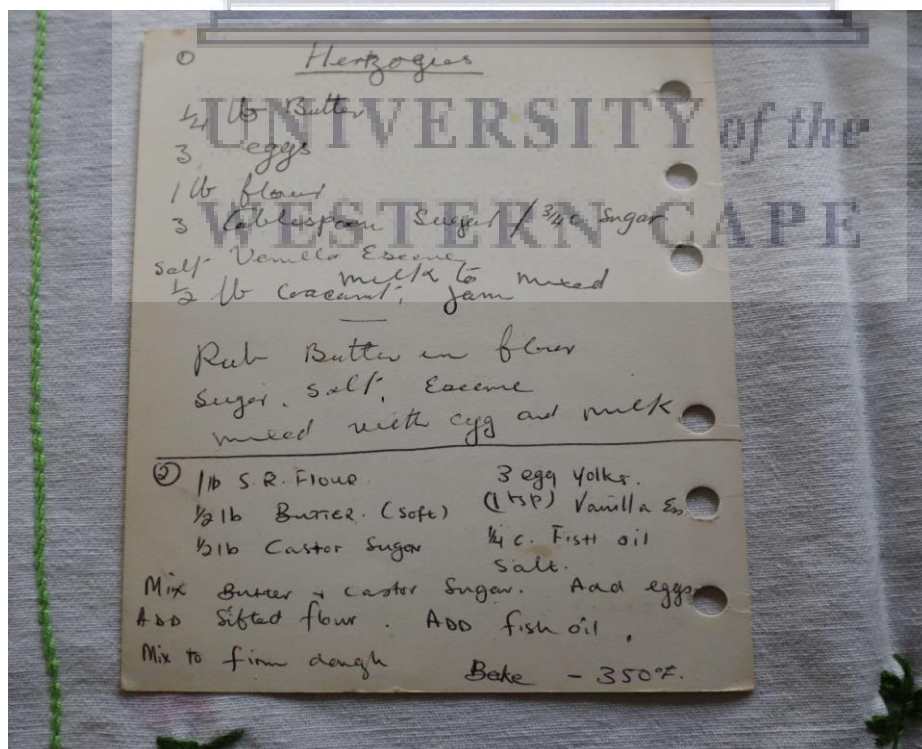 UNIVERSITY of the
WESTERN CAPE
① Hertzogies
1/4 lb Butter
3 eggs
1 lb flour
3 tablespoon Sugar / 3/4 c. Sugar
salt Vanilla Escene
milk to mixed
1/2 lb Coacanut, jam
Rub Butter in flour
Sugar. Salt. Escene
mixed with egg and milk
② 1 lb S.R. Flour 3 egg yolks.
1/2 lb Butter. (soft) (1 tsp) Vanilla Es
1/2 lb Castor Sugar 1/4 c. Fish oil
Salt.
Mix Butter + castor Sugar. Add eggs
ADD Sifted flour. ADD fish oil.
Mix to firm dough Bake - 350°F.